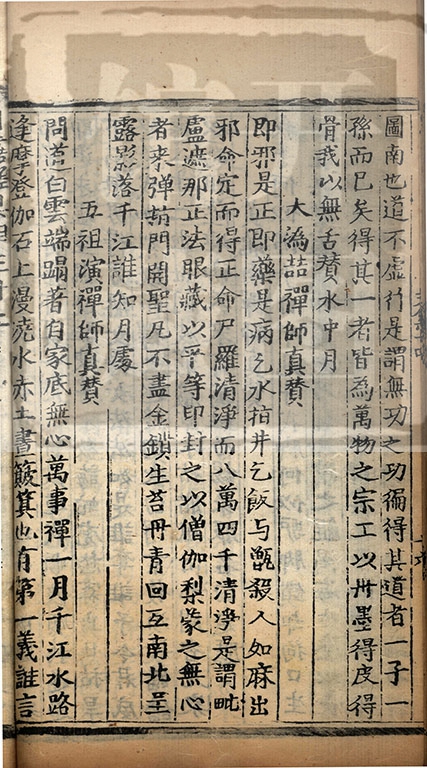 圖南也道不虛行是謂無功之功徧得其道者一子一
孫而已矣得其一者皆爲萬物之宗工以丹墨得皮得
骨我以無舌賛水中月
大溈喆禪師真賛
即邪是正即藥是病乞水指井乞飯与甑殺人如麻出
邪命定而得正命尸羅清淨而八萬四千清淨是謂毗
盧遮那正法眼藏以平等印封之以僧伽梨蒙之無心
者来弹指門開聖凡不盡金鎖生苔丹青回互南北呈
露影落千江誰知月處
五祖演禪師真賛
問道白雲端蹋著自家底無心萬事禪一月千江水路
逢摩登伽石上漫澆水亦土晝簸箕也有第一義誰言